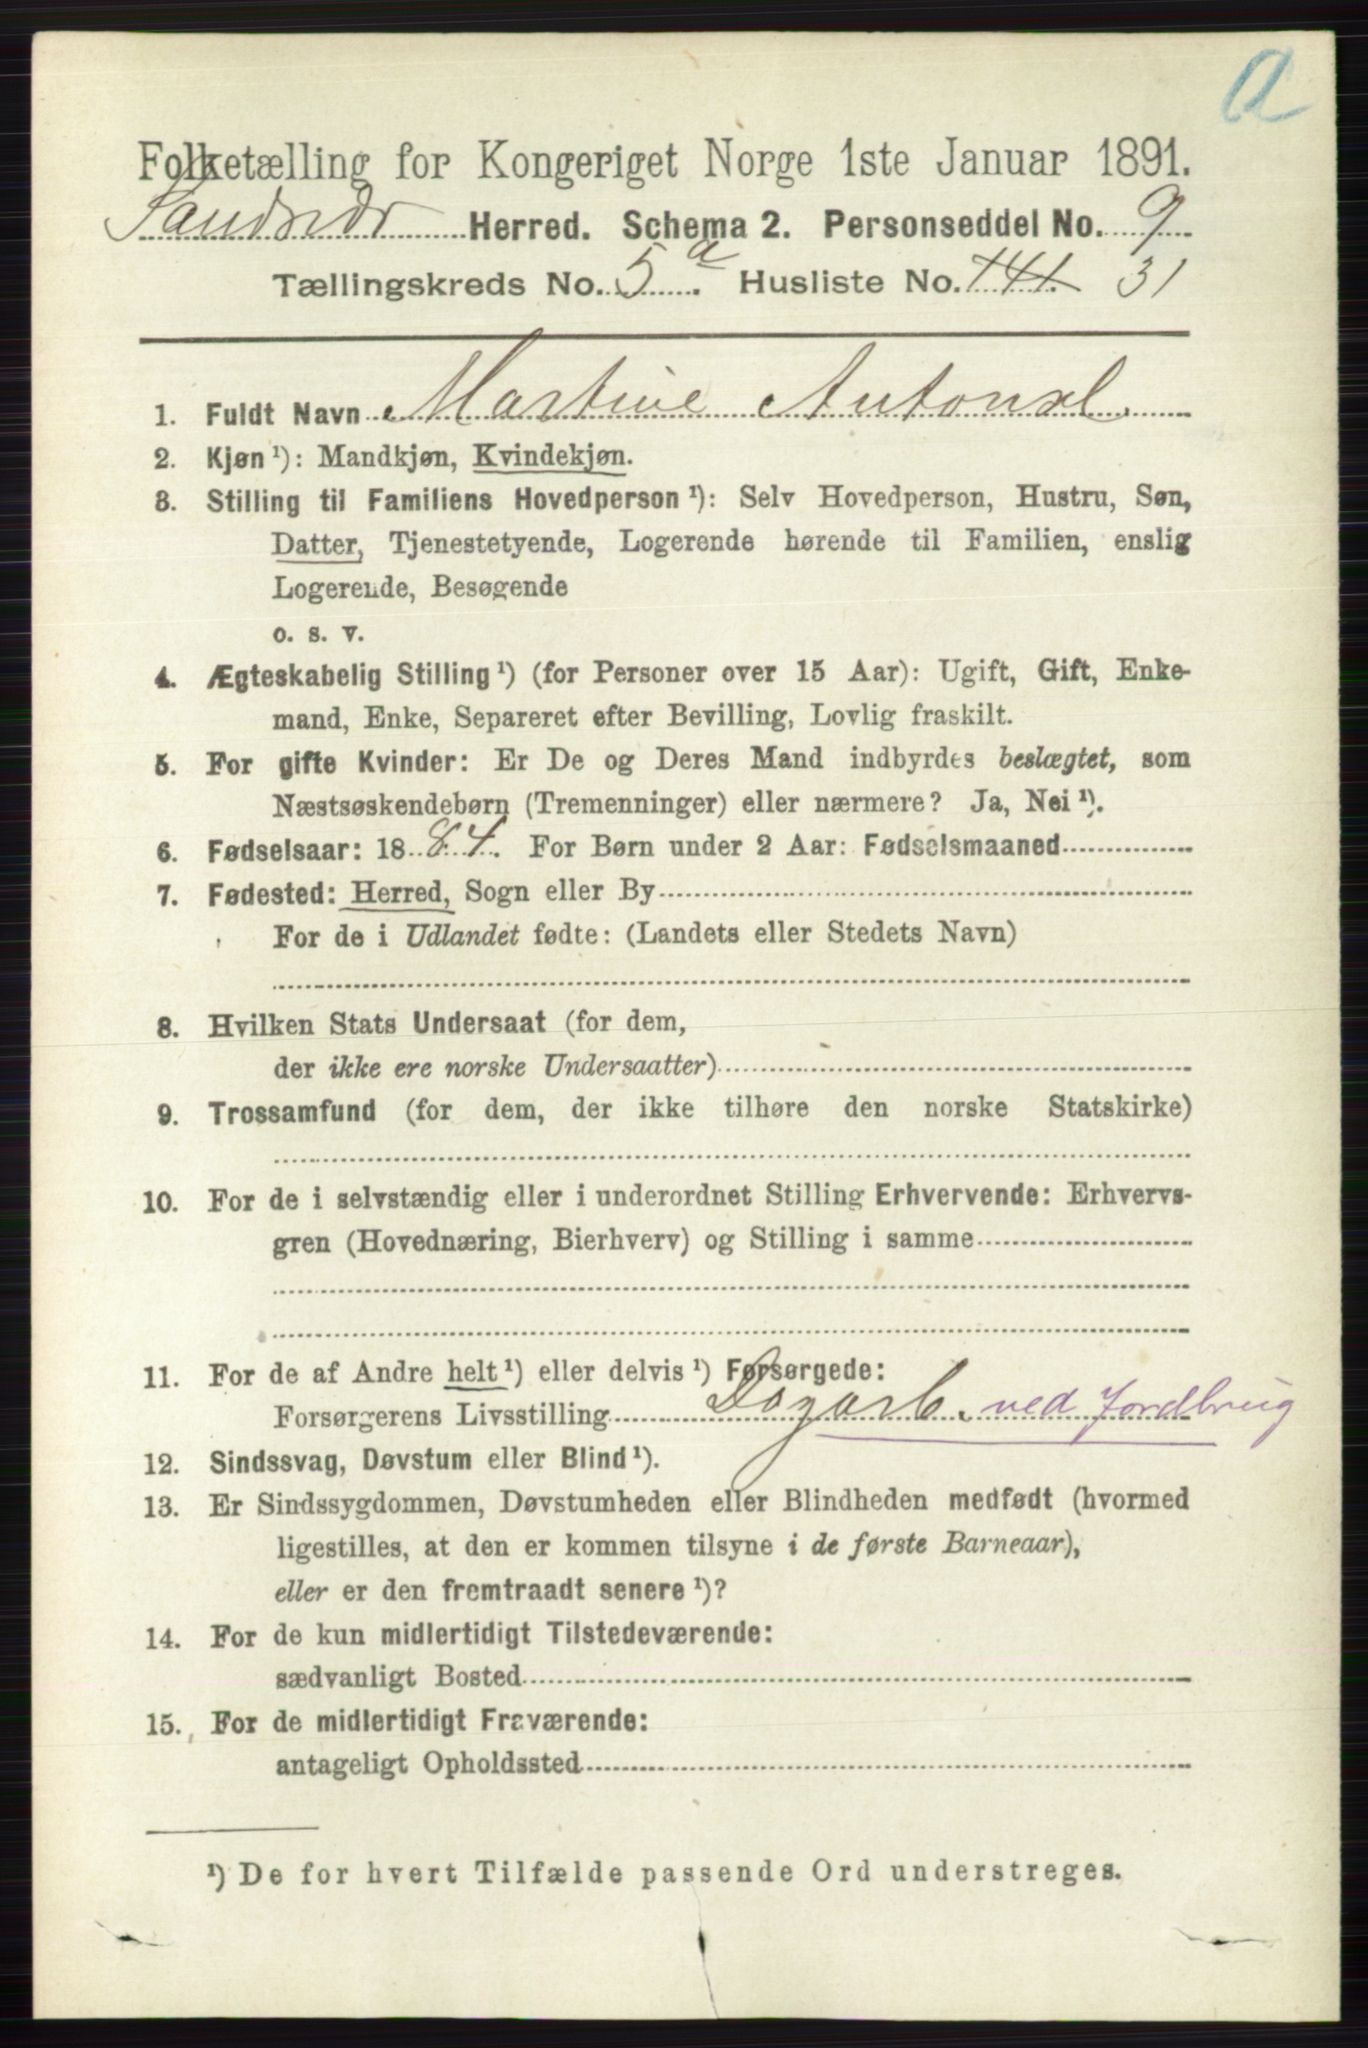 a
Folketælling for Kongeriget Norge 1ste Januar 1891.
Sandeherr Herred. Schema 2. Personseddel No. 9
Tællingskreds No. 5 a. Husliste No. 141. 31
1. Fuldt Navn Martine Antonsd.
2. Kjøn ¹): Mandkjøn, Kvindekjøn.
3. Stilling til Familiens Hovedperson ¹): Selv Hovedperson, Hustru, Søn,
Datter, Tjenestetyende, Logerende hørende til Familien, enslig
Logerende, Besøgende
o. s. v.
4. Ægteskabelig Stilling ¹) (for Personer over 15 Aar): Ugift, Gift, Enke-
mand, Enke, Separeret efter Bevilling, Lovlig fraskilt.
5. For gifte Kvinder: Er De og Deres Mand indbyrdes beslægtet, som
Næstsøskendebørn (Tremenninger) eller nærmere? Ja, Nei ¹).
6. Fødselsaar: 1884. For Børn under 2 Aar: Fødselsmaaned
7. Fødested: Herred, Sogn eller By
For de i Udlandet fødte: (Landets eller Stedets Navn)
8. Hvilken Stats Undersaat (for dem,
der ikke ere norske Undersaatter)
9. Trossamfund (for dem, der ikke tilhøre den norske Statskirke)
10. For de i selvstændig eller i underordnet Stilling Erhvervende: Erhvervs-
gren (Hovednæring, Bierhverv) og Stilling i samme
11. For de af Andre helt ¹) eller delvis ¹) Forsørgede:
Forsørgerens Livsstilling Dagarb. ved Jordbrug
12. Sindssvag, Døvstum eller Blind ¹).
13. Er Sindssygdommen, Døvstumheden eller Blindheden medfødt (hvormed
ligestilles, at den er kommen tilsyne i de første Barneaar),
eller er den fremtraadt senere ¹)?
14. For de kun midlertidigt Tilstedeværende:
sædvanligt Bosted
15. For de midlertidigt Fraværende:
antageligt Opholdssted
¹) De for hvert Tilfælde passende Ord understreges.